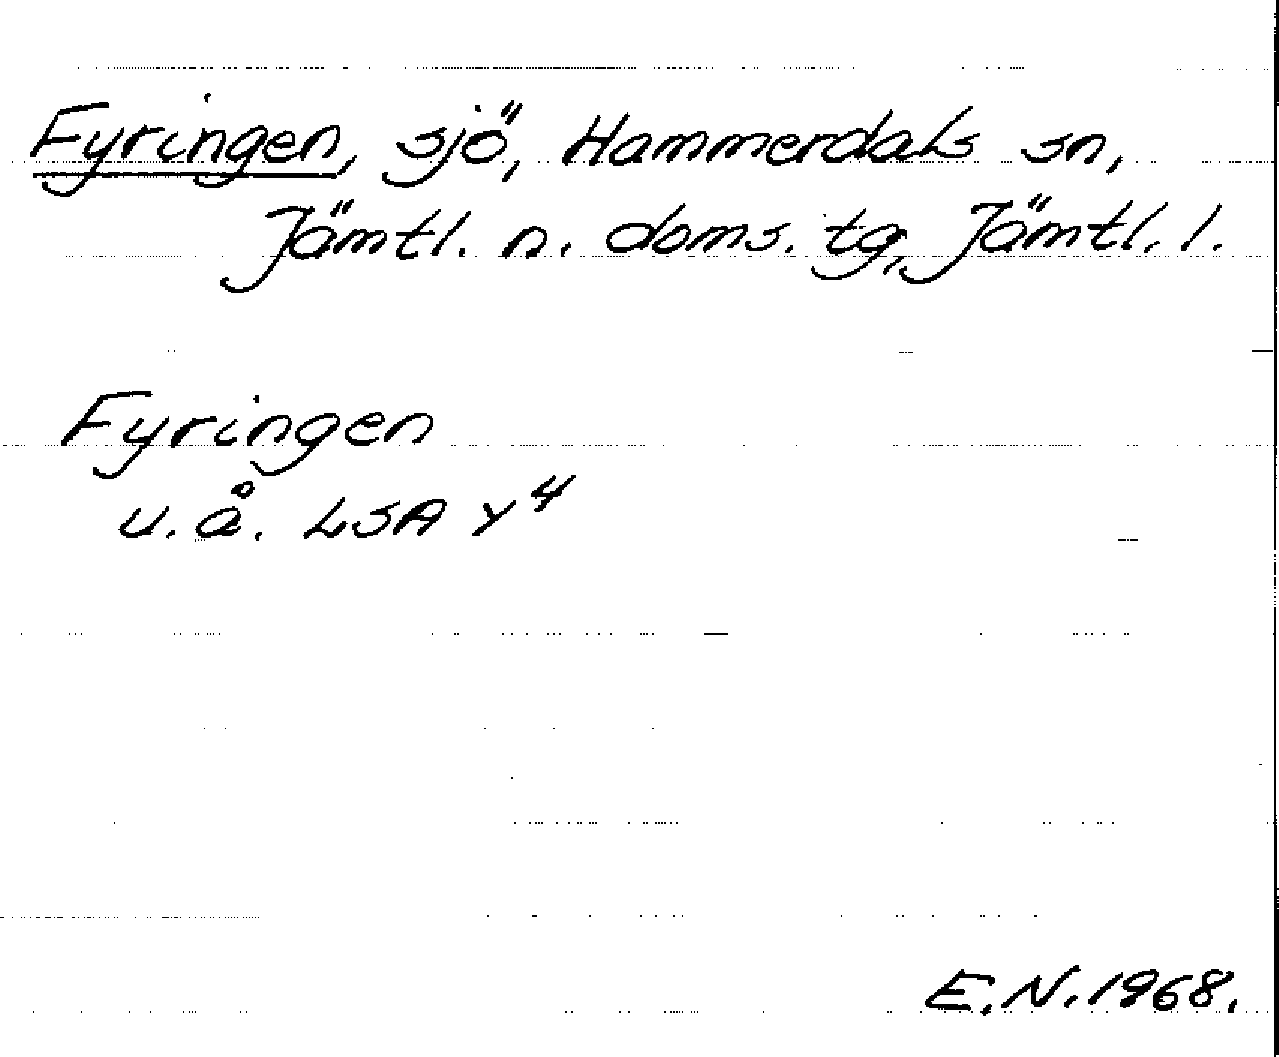 Fyringen, sjö, Hammerdals sn,
Jämtl. n. doms. tg, Jämtl. l.
Fyringen
u.å. LSA Y4
E.N. 1968.